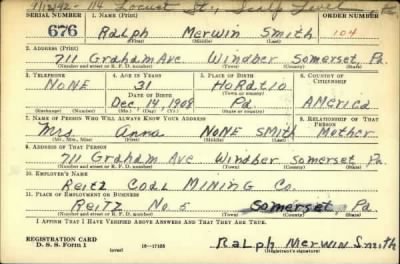 9/12/42 - 114 Locust St., Scalp Level
SERIAL NUMBER 1. NAME (Print) ORDER NUMBER
676 Ralph Merwin Smith 104
(First) (Middle) (Last)
2. ADDRESS (Print)
711 Graham Ave Windber Somerset, Pa.
(Number and street or R. F. D. number) (Town) (County) (State)
3. TELEPHONE 4. AGE IN YEARS 5. PLACE OF BIRTH 6. COUNTRY OF CITIZENSHIP
NONE 31 Horatio
DATE OF BIRTH (Town or county)
Dec 14 1908 Pa. America
(Mo.) (Day) (Yr.) (State or country)
7. NAME OF PERSON WHO WILL ALWAYS KNOW YOUR ADDRESS 8. RELATIONSHIP OF THAT PERSON
Mrs. Anna NONE Smith Mother
(Mr., Mrs., Miss) (First) (Middle) (Last)
9. ADDRESS OF THAT PERSON
711 Graham Ave Windber Somerset Pa.
(Number and street or R. F. D. number) (Town) (County) (State)
10. EMPLOYER'S NAME
Reitz Coal Mining Co.
11. PLACE OF EMPLOYMENT OR BUSINESS
Reitz No. 5 Somerset, Pa
(Number and street or R. F. D. number) (Town) (County) (State)
I AFFIRM THAT I HAVE VERIFIED ABOVE ANSWERS AND THAT THEY ARE TRUE.
REGISTRATION CARD
D. S. S. Form 1 (over) 16-17105 Ralph Merwin Smith
(Registrant's signature)